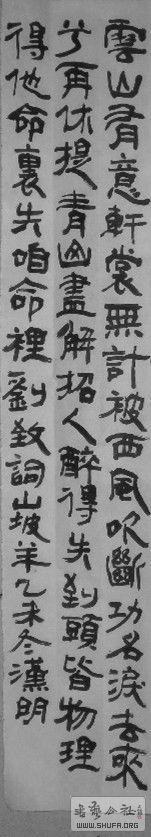 雲山有意軒裳無計被西風吹斷功名淚去來
兮再休提青山盡解招人醉得失到頭皆物理
得他命裏失咱命裡劉致詞山坡羊乙未冬漢明
書藝公社
WWW.SHUFA.ORG